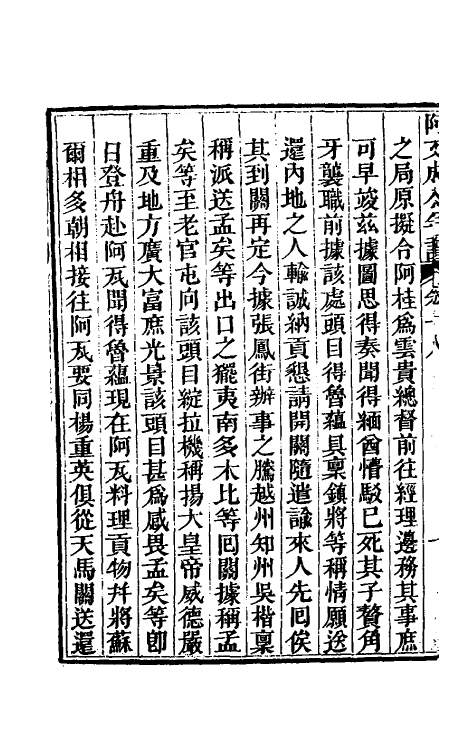 阿文成公年譜 卷十八
之局原擬合阿桂爲雲貴總督前往經理邊務其事庶
可早竣茲據圖思得奏聞得緬酋懵駁已死其子贅角
牙襲職前據該處頭目得魯蘊具稟鎮將等稱情願送
還內地之人輸誠納貢懇請開關隨遣諭來人先囘俟
其到關再定今據張鳳街辦事之騰越州知州吳楷稟
稱派送孟矣等出口之擺夷南多木比等囘關據稱孟
矣等至老官屯向該頭目綻拉機稱揚大皇帝威德嚴
重及地方廣大富庶光景該頭目甚爲感畏孟矣等卽
日登舟赴阿瓦聞得魯蘊現在阿瓦料理貢物幷將蘇
爾相多朝相接往阿瓦要同楊重英俱從天馬關送還